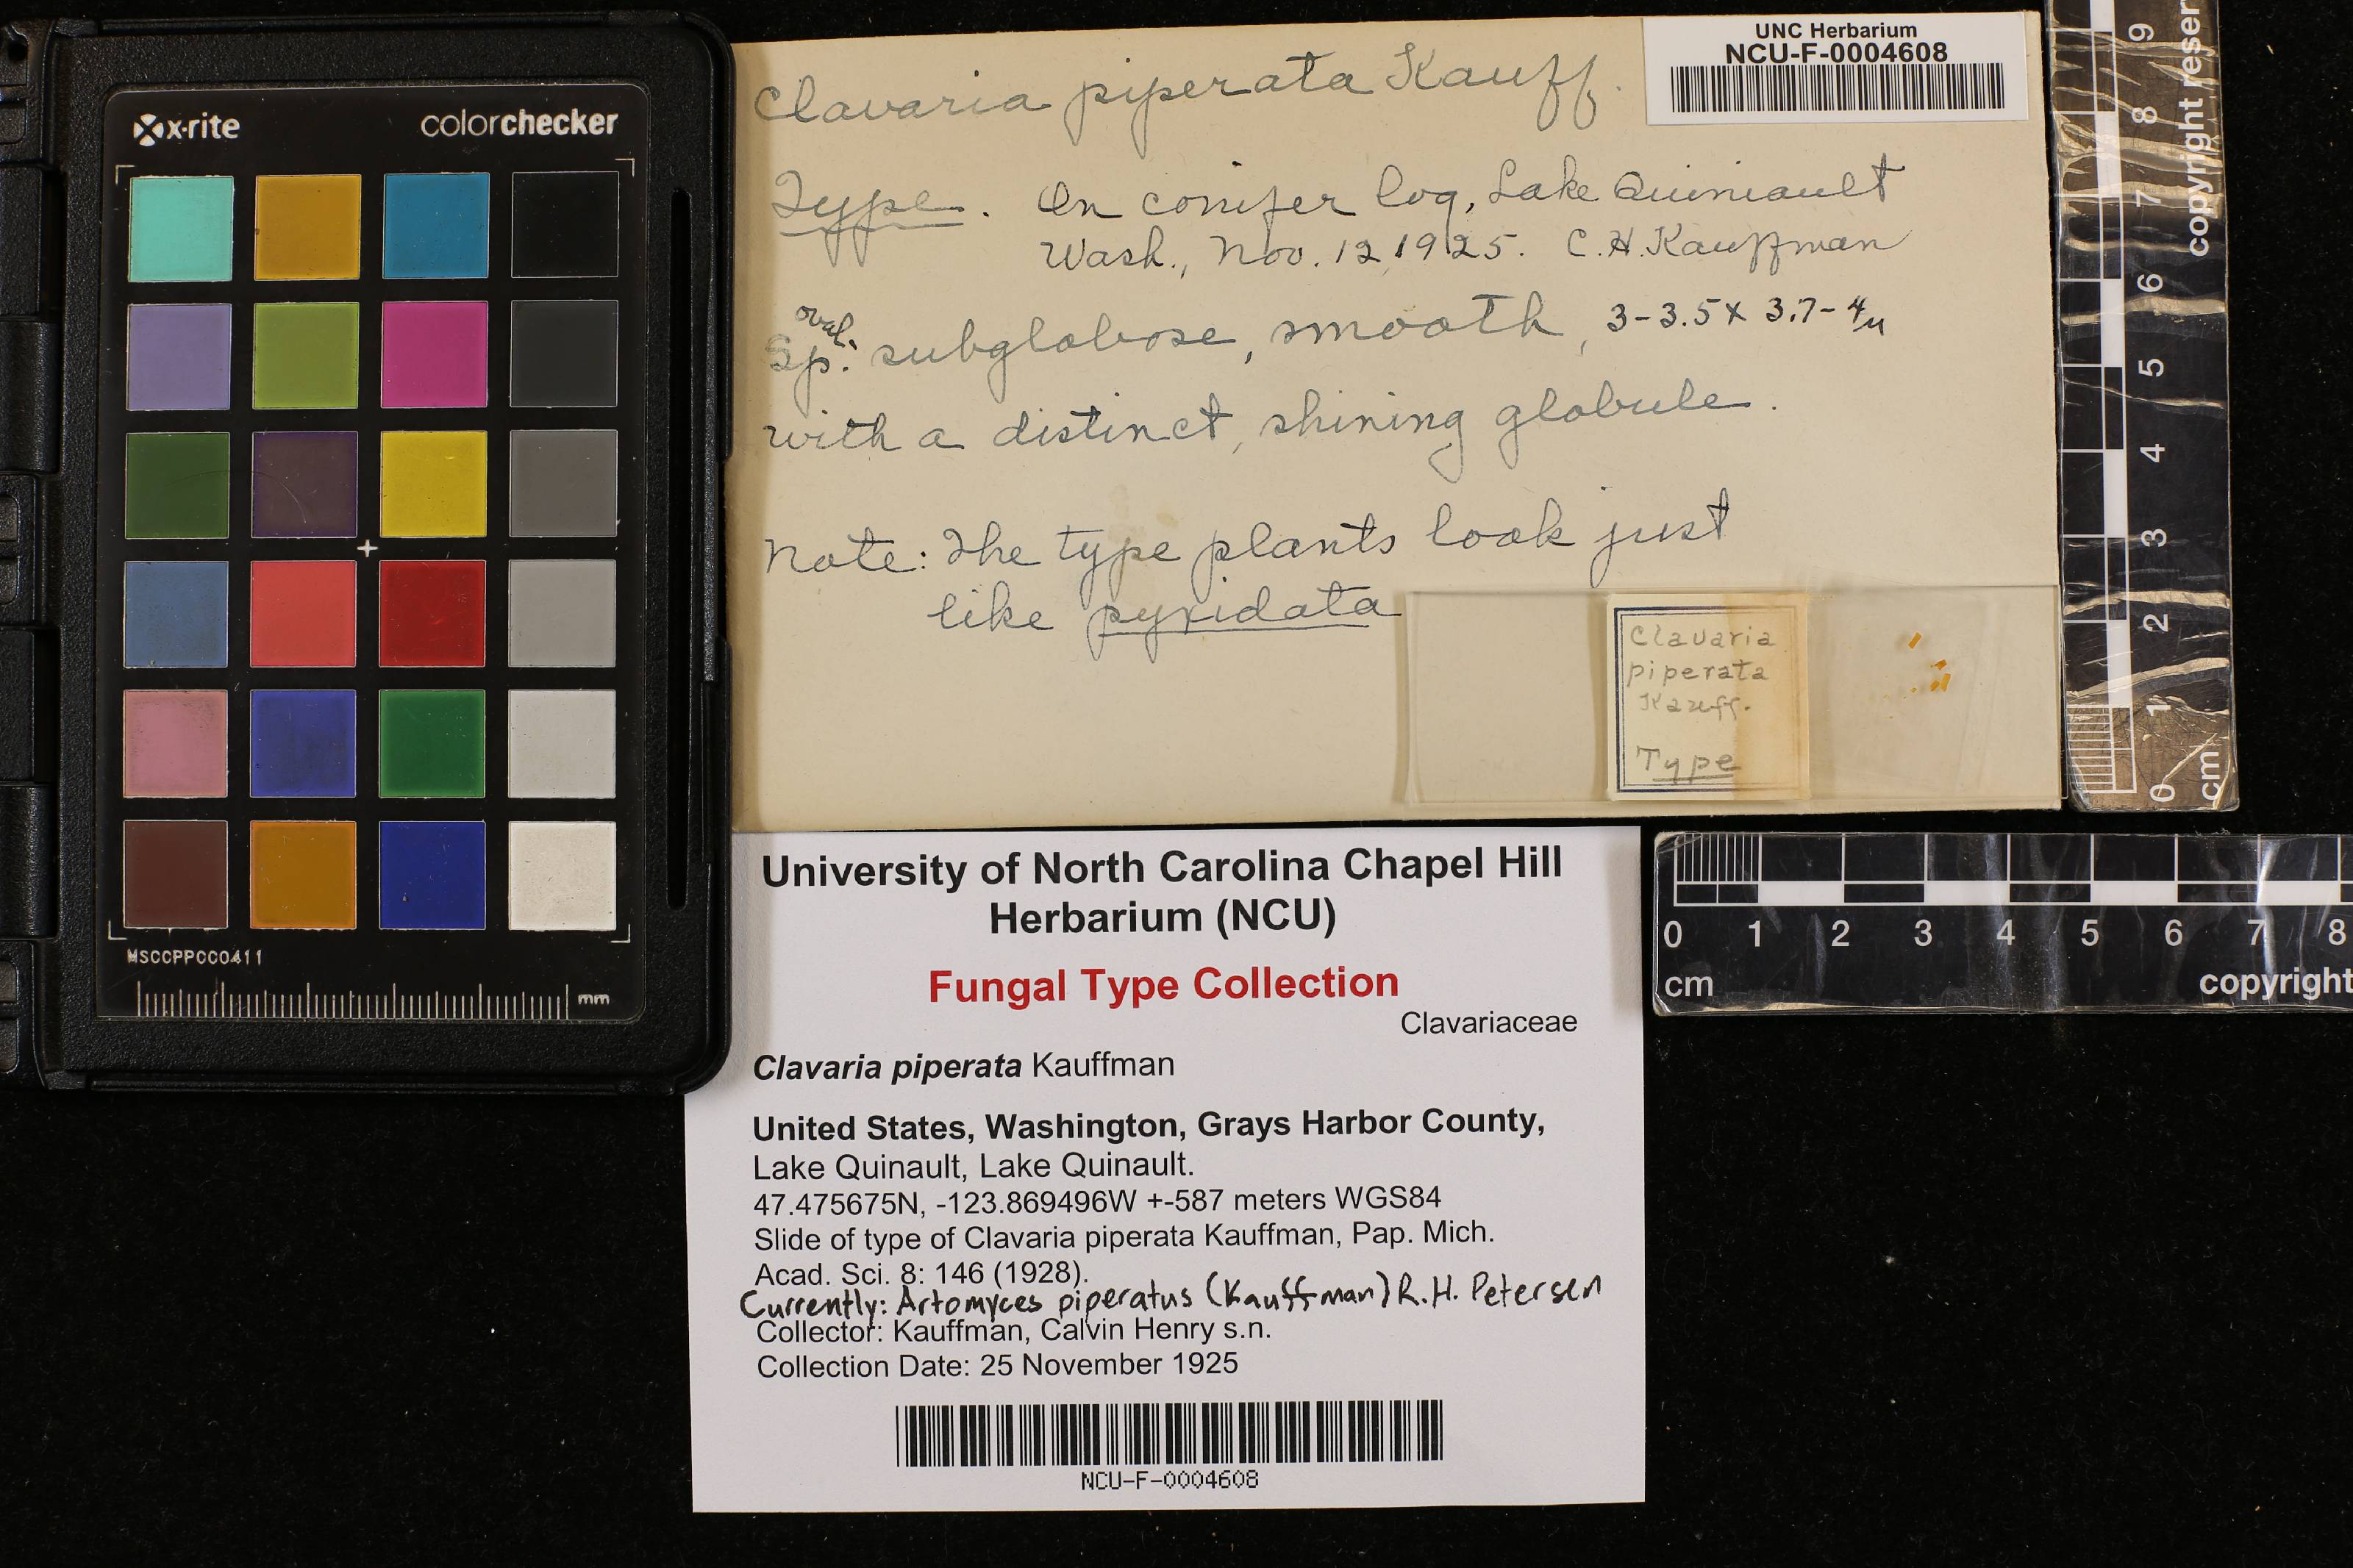 x-rite colorchecker
MSCCPPCC0411
mm
UNC Herbarium
NCU-F-0004608
Clavaria piperata Kauff.
Type. On conifer log, Lake Quiniault
Wash., Nov. 12, 1925. C.H. Kauffman
oval.
Sp. subglobose, smooth, 3-3.5 x 3.7-4µ
with a distinct, shining globule.
Note: The type plants look just
like pyxidata
Clavaria
piperata
Kauff.
Type
9 8 7 6 5 4 3 2 1 0
copyright reser
cm
0 1 2 3 4 5 6 7 8
cm copyright
University of North Carolina Chapel Hill
Herbarium (NCU)
Fungal Type Collection
Clavariaceae
Clavaria piperata Kauffman
United States, Washington, Grays Harbor County,
Lake Quinault, Lake Quinault.
47.475675N, -123.869496W +-587 meters WGS84
Slide of type of Clavaria piperata Kauffman, Pap. Mich.
Acad. Sci. 8: 146 (1928).
Currently: Artomyces piperatus (Kauffman) R.H. Petersen
Collector: Kauffman, Calvin Henry s.n.
Collection Date: 25 November 1925
NCU-F-0004608